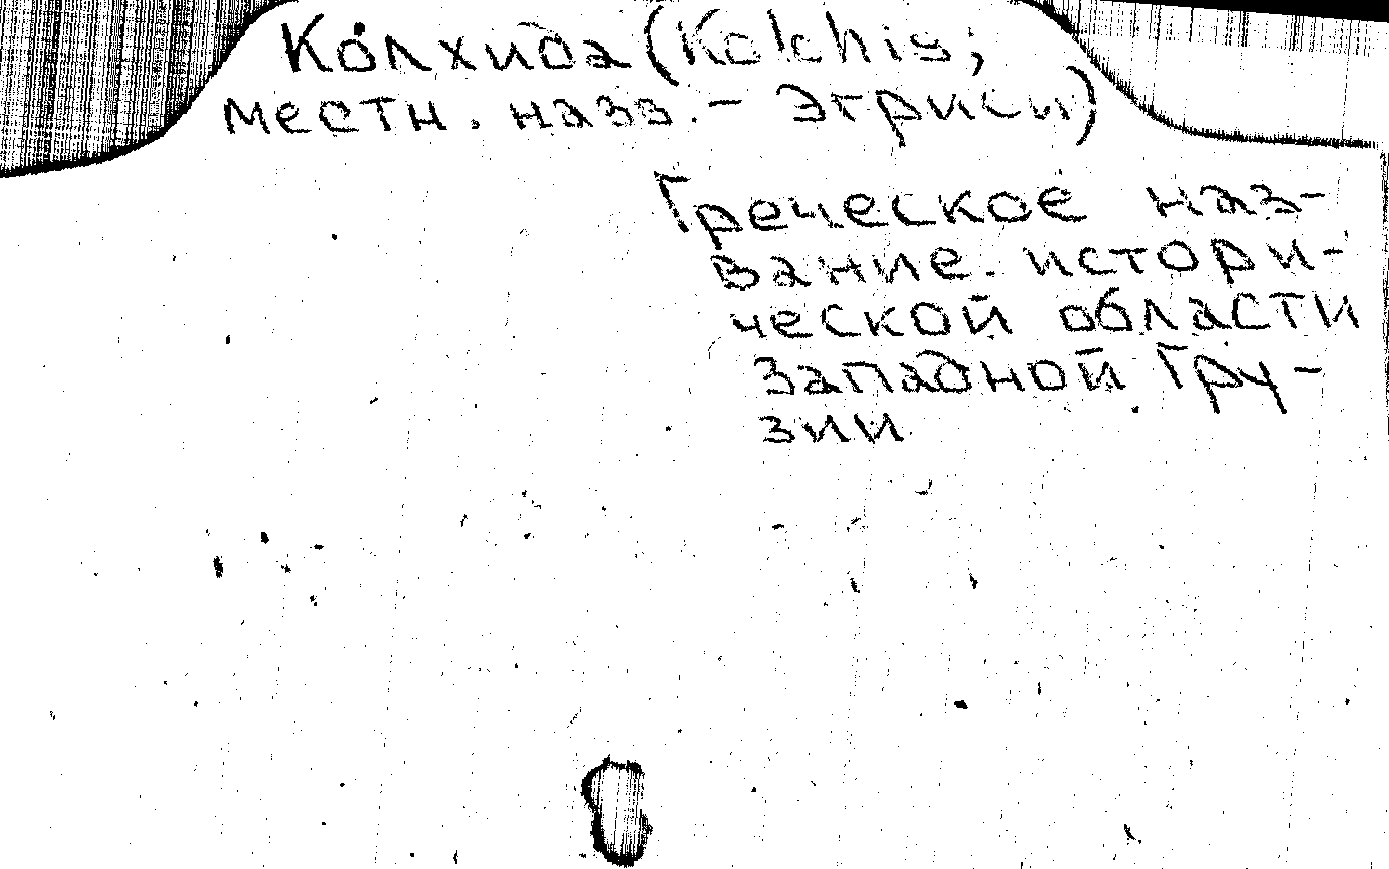 Колхида (Kolchis;
местн. назв. - Эгриси)
Греческое наз-
вание истори-
ческой области
Западной Гру-
зии